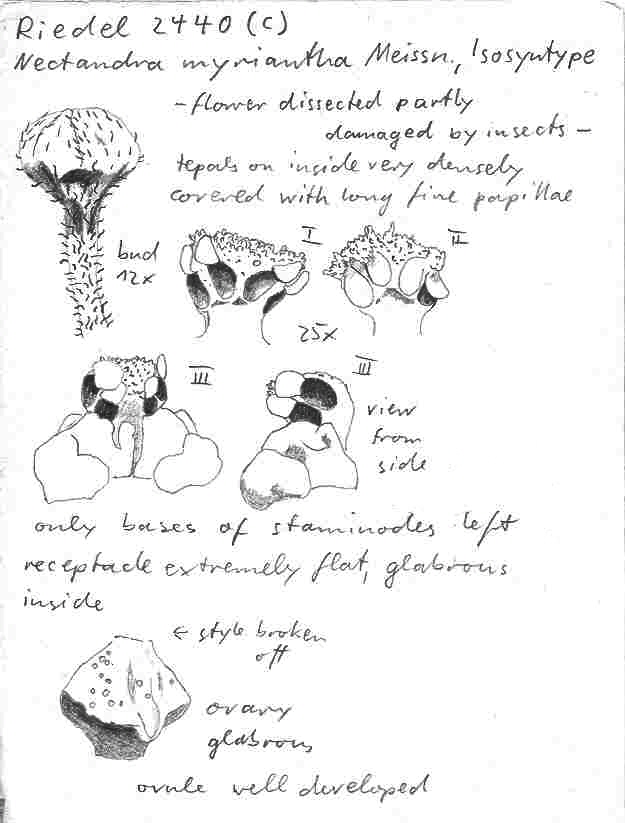 Riedel 2440 (C)
Nectandra myriantha Meissn., Isosyntype
- flower dissected partly
damaged by insects -
tepals on inside very densely
covered with long fine papillae
bud
12x
I
II
25x
III
III
view
from
side
only bases of staminodes left
receptacle extremely flat, glabrous
inside
← style broken
off
ovary
glabrous
ovule well developed